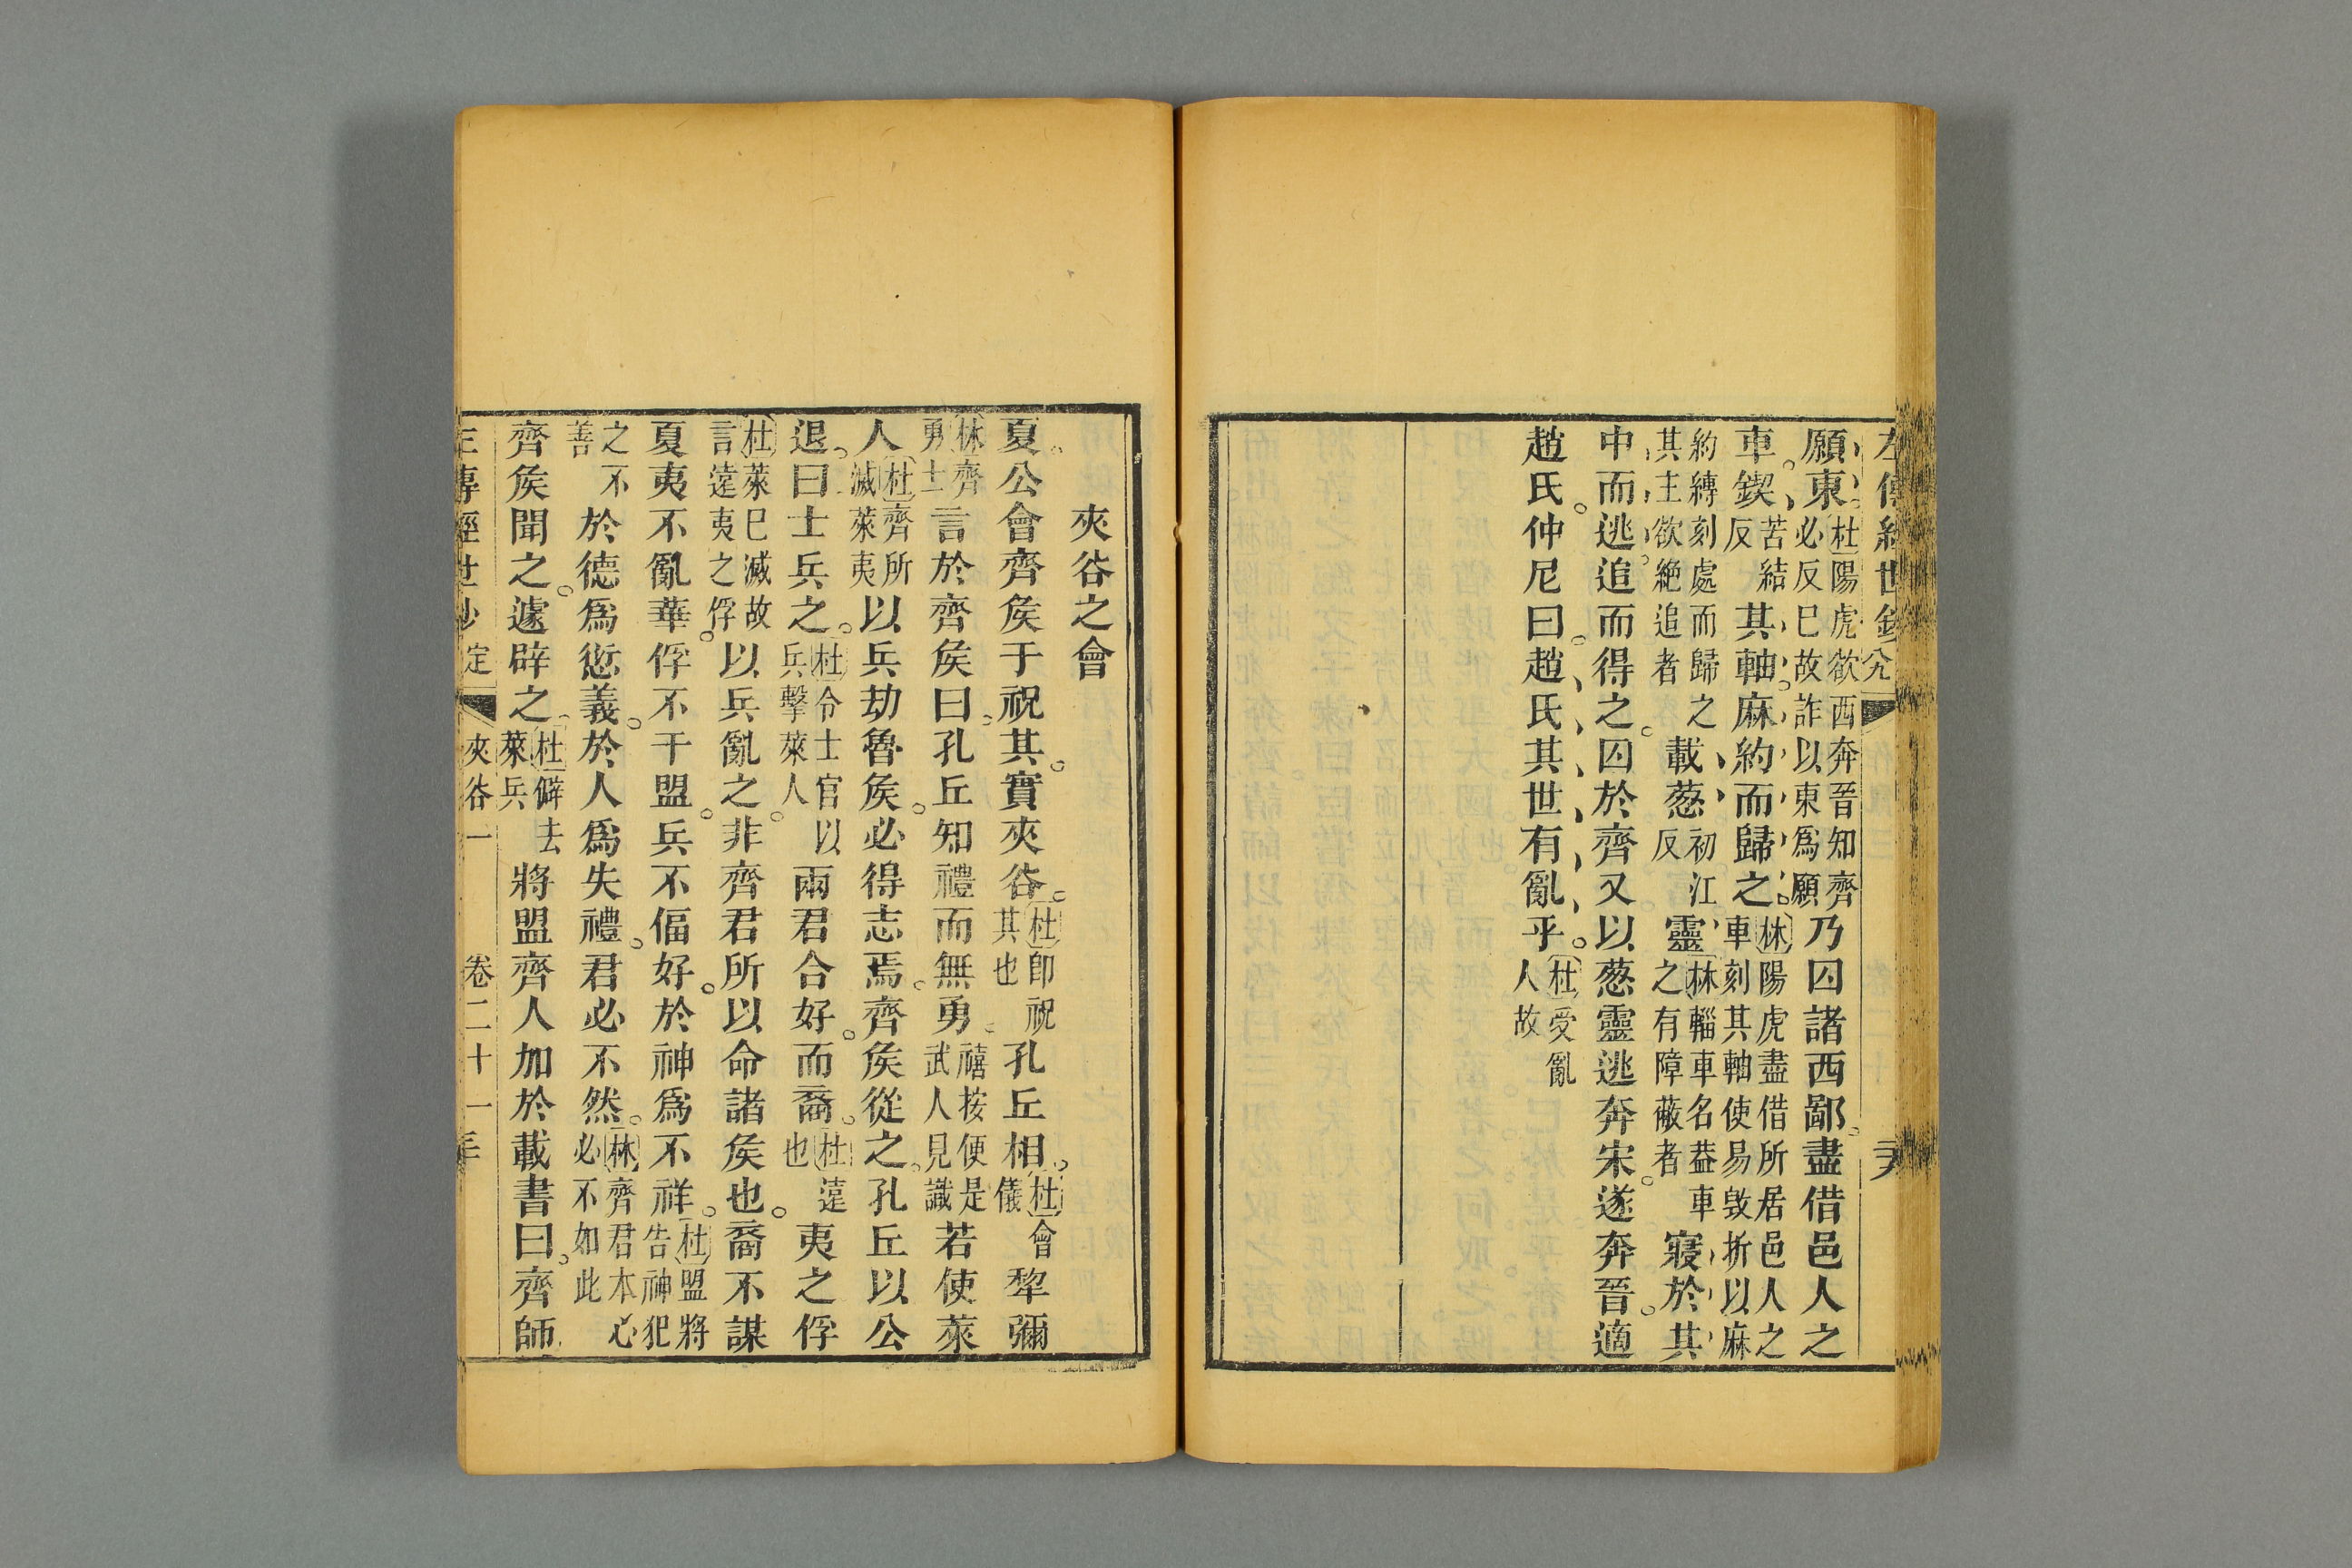 願東杜陽虎欲西奔晉知齊必反已故詐以東爲願乃囚諸西鄙盡借邑人之
車鍥苦結反其軸麻約而歸之林陽虎盡借所居邑人之車刻其軸使易毀折以麻
約縛刻處而歸之其主欲絶追者載葱初江反靈林輜車名葢車之有障蔽者寢於其
中而逃追而得之囚於齊又以葱靈逃奔宋遂奔晉適
趙氏仲尼曰趙氏其世有亂乎杜受亂人故
夾谷之會
夏公會齊矦于祝其實夾谷杜卽祝其也孔丘相杜會儀犂彌
林齊勇士言於齊矦曰孔丘知禮而無勇禧按便是武人見識若使萊
人杜齊所滅萊夷以兵劫魯矦必得志焉齊矦從之孔丘以公
退曰士兵之杜令士官以兵擊萊人兩君合好而裔杜遠也夷之俘
杜萊已滅故言遠夷之俘以兵亂之非齊君所以命諸矦也裔不謀
夏夷不亂華俘不干盟兵不偪好於神爲不祥杜盟將告神犯
之不善於德爲愆義於人爲失禮君必不然林齊君本心必不如此
齊矦聞之遽辟之杜僻去萊兵將盟齊人加於載書曰齊師
定 夾谷一 卷二十一